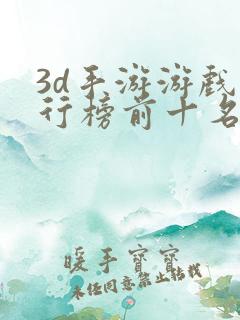 3d手游游戏
行榜前十名
暖手宝宝
未经同意禁止转载